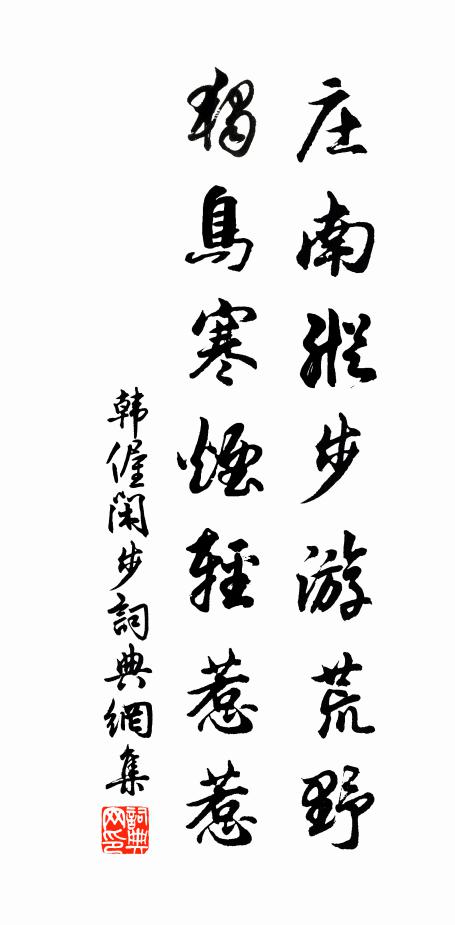 庄南縱步游荒野
獨鳥寒煙輕惹惹
韩偓閑步詞典網集
詞典网印